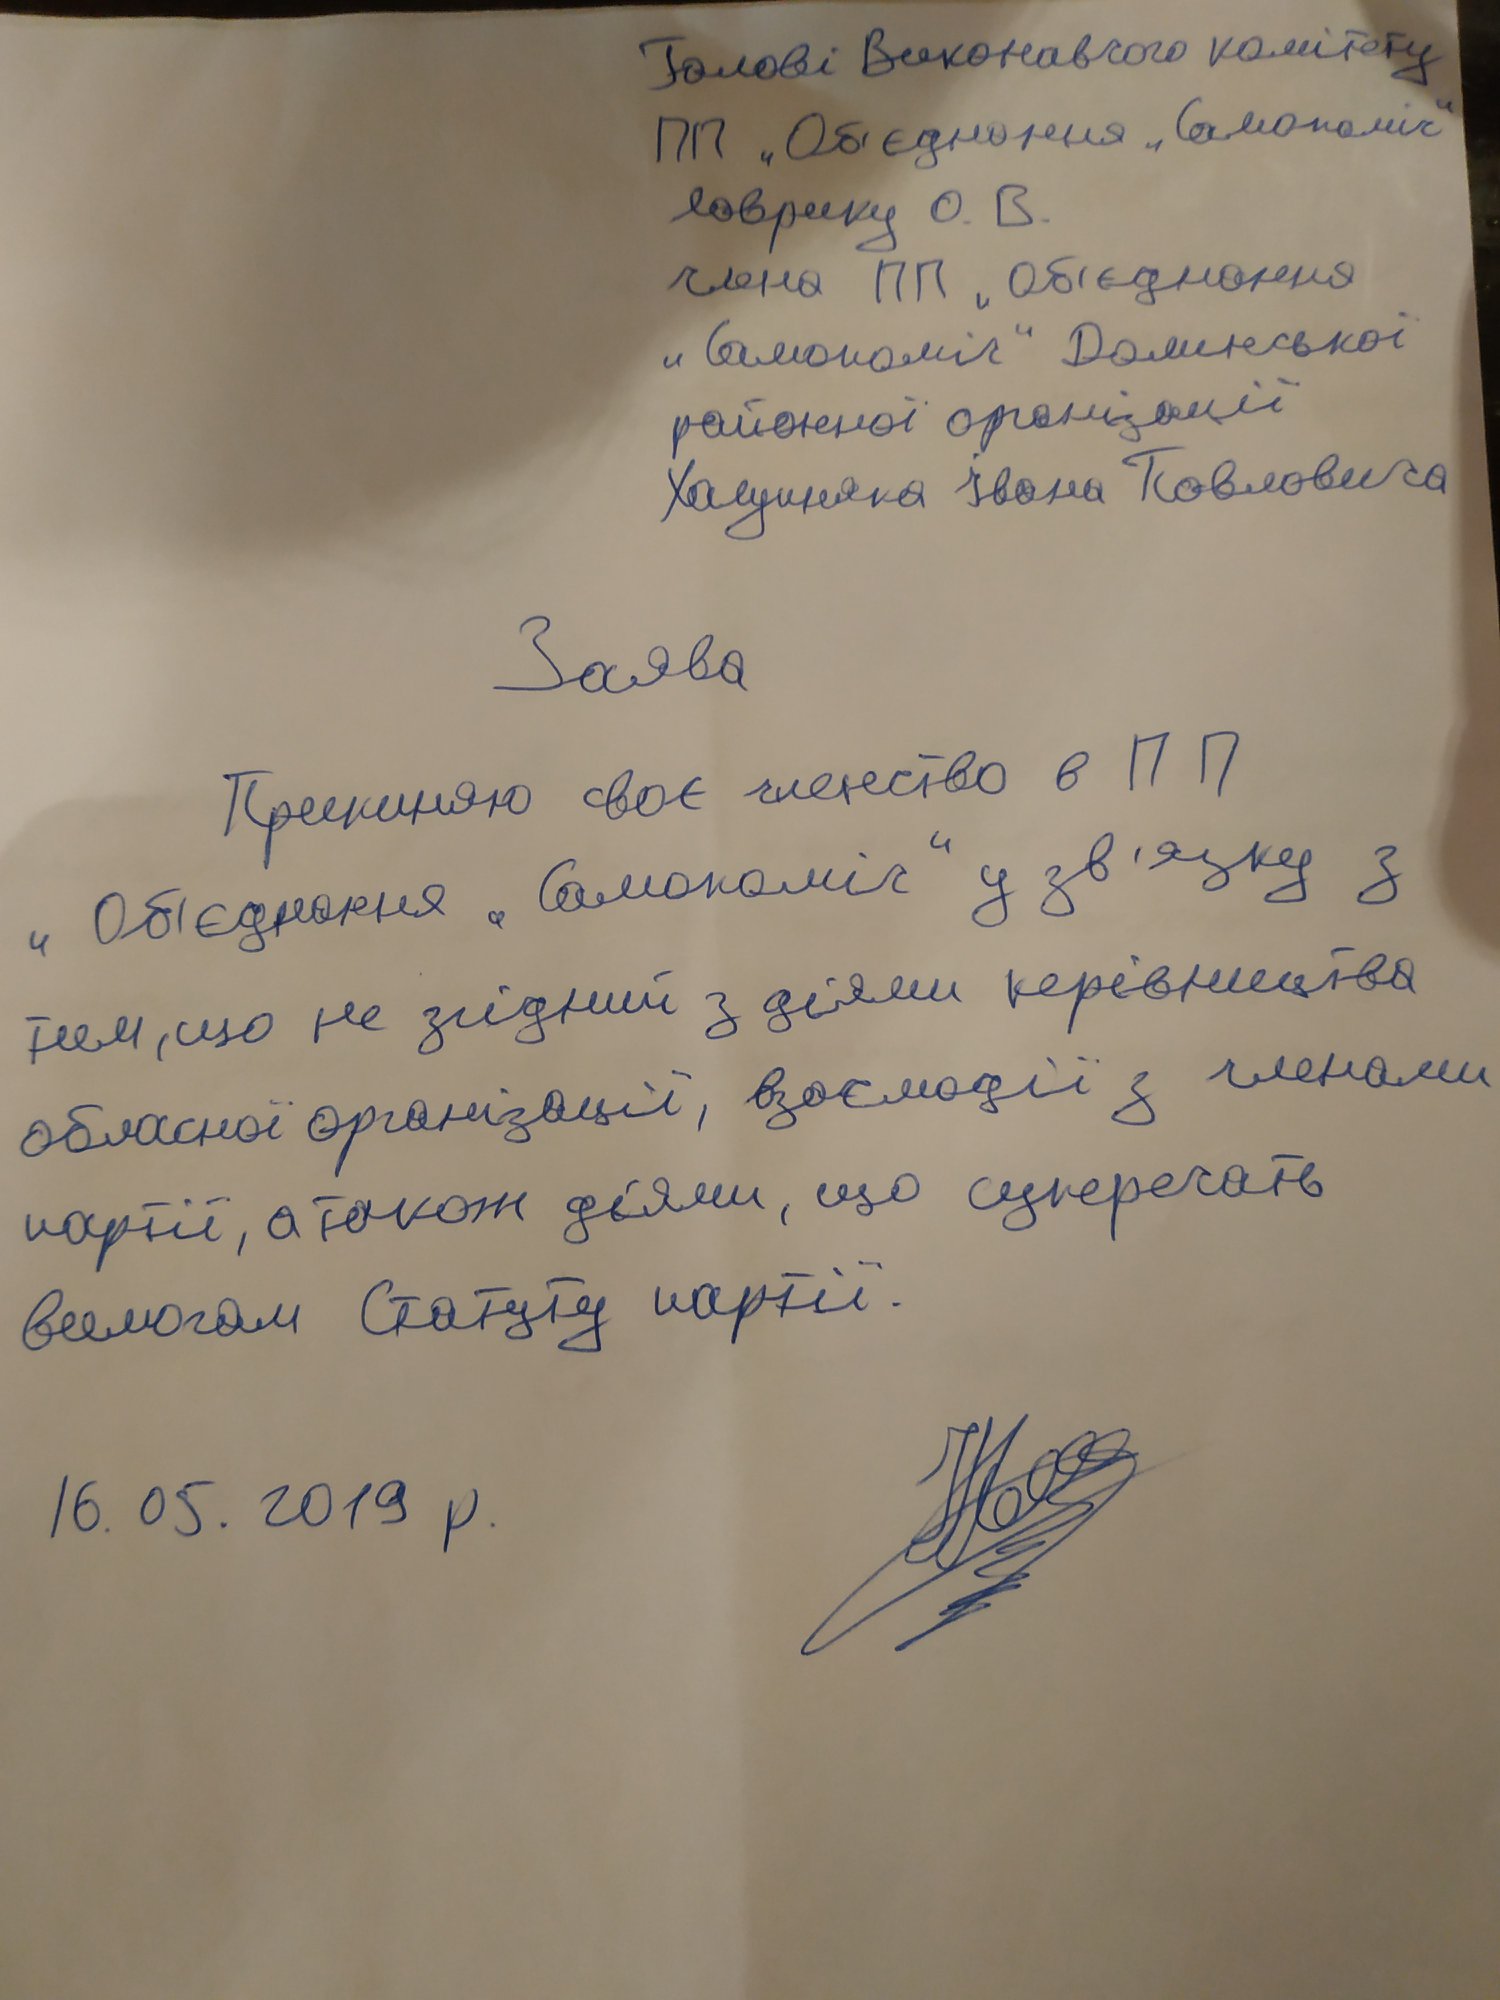 Голові Виконавчого комітету
ПП „Об'єднання „Самопоміч"
Лаврику О. В.
члена ПП „Об'єднання
„Самопоміч" Долинської
районної організації
Івана Павловича
Заява
Припиняю своє членство в ПП
„Об'єднання „Самопоміч" у зв'язку з
тим, що не згідний з діями керівництва
обласної організації, взаємодії з членами
партії, а також діями, що суперечать
вимогам Статуту партії.
16.05.2019 р.